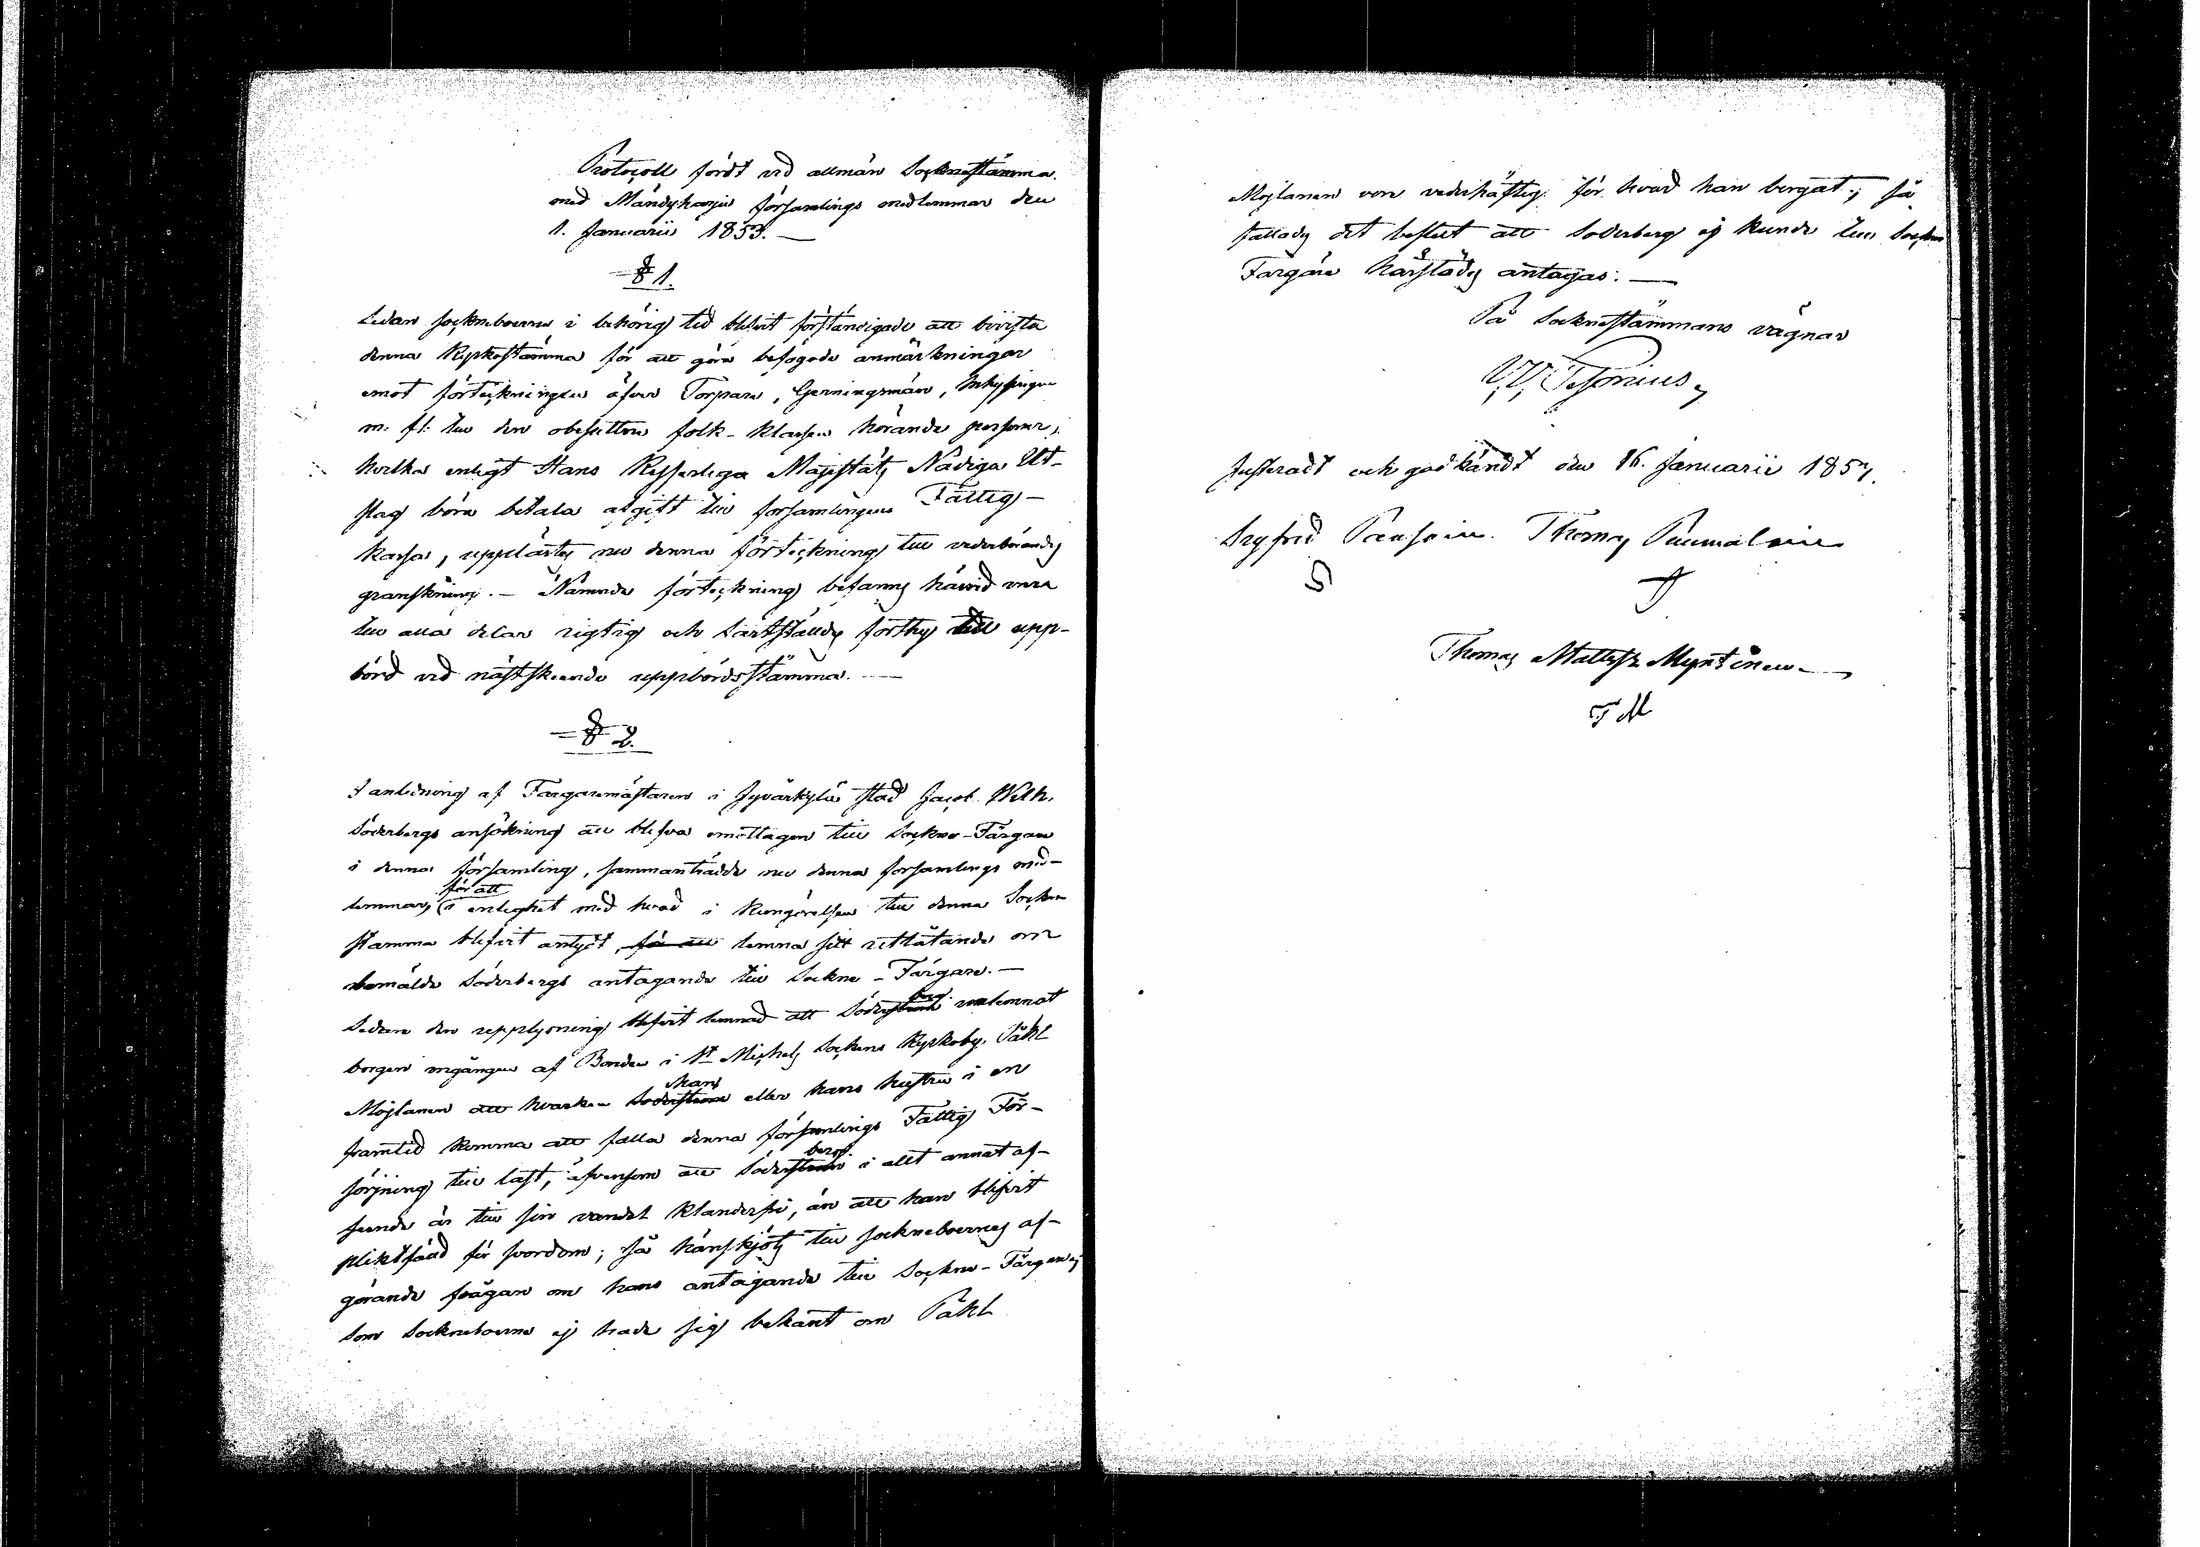 Protocoll fördt vid allmän Socknestämma
med Mändyharju församlings medlemmar den
1. Januarii 1853. —
§ 1.
Sedan sockneboerne i behörig tid blifvit förständigade att bivista
denna Kyrkostämma för att göra befogade anmärkningar
emot förteckningen öfver Torpare, Gerningsmän, Inhysingar
m. fl. till den obesuttna folk-klassen hörande personer,
hvilka enligt Hans Kejserliga Majestäts Nådiga Ut-
slag böra betala afgift till församlingens Fattig-
kassa, upplästes nu denna förteckning till vederbörandes
granskning. — Nämnde förteckning befanns härvid vara
till alla delar rigtig och fastställdes förthy till upp-
börd vid nästskeende uppbördsstämma. —
§ 2.
I anledning af Färgaremästaren i Jyväskylä stad Jacob Wilh.
Söderbergs ansökning att blifva emottagen till Sockne-Färgare
i denna församling, sammanträdde nu denna församlings med-
lemmar, för att i enlighet med hvad i kungörelsen till denna Sockne
stämma blifvit antydt, för att lemna sitt utlåtande om
bemälde Söderbergs antagande till Sockne-Färgare. —
Sedan den upplysning blifvit lemnad att Söderberg
borgen ingången af Bonden i St Michels Sockens Kyrkoby, Påhl
Mojlanen att hvarken han eller hans hustru i en
framtid komma att falla denna församlings Fattig För-
sörjning till last, äfvensom att Söderberg i allt annat af-
seende är till sin vandel klanderfri, än att han blifvit
pliktfäld för svordom; så hänskjöts till sockneboernes af-
görande frågan om hans antagande till Sockne-Färgare;
Som Sockneboerne ej hade sig bekant om Påhl
Mojlanen vore vederhäftig för hvad han borgat; så
fattades det beslut att Söderberg ej kunde till Sockne
Färgare härstädes antagas. —
På Socknestämmans vägnar
Justeradt och godkändt den 16. Januarii 1853.
Sigfrid Thomas
S
Thomas Mattss Myntinen
T M